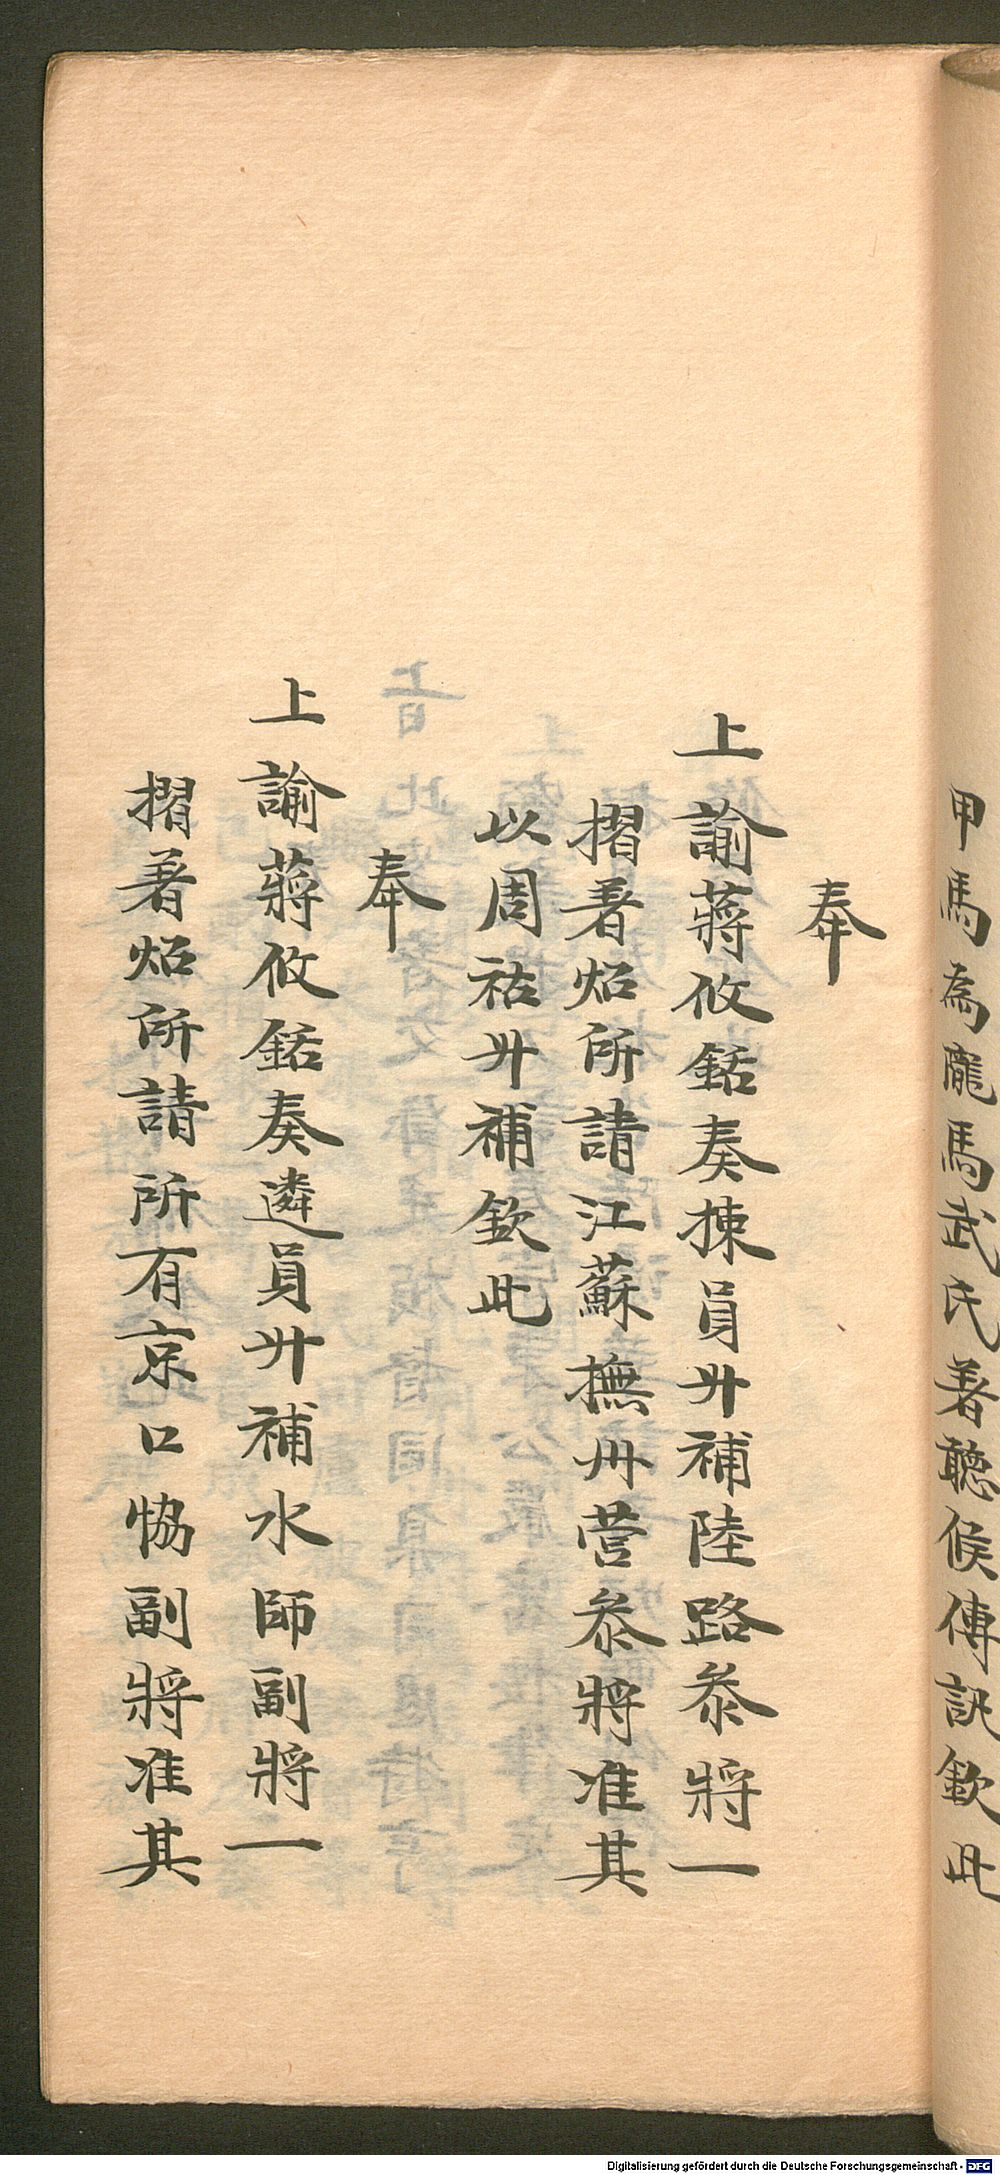 甲馬為龐馬武氏著聽候傳訊欽此
奉
上諭蔣攸銛奏揀員升補陸路叅將一
摺著炤所請江蘇撫州營叅將准其
以周祜升補欽此
奉
上諭蔣攸銛奏遴員升補水師副將一
摺著炤所請所有京口恊副將准其
Digitalisierung gefördert durch die Deutsche Forschungsgemeinschaft - DFG